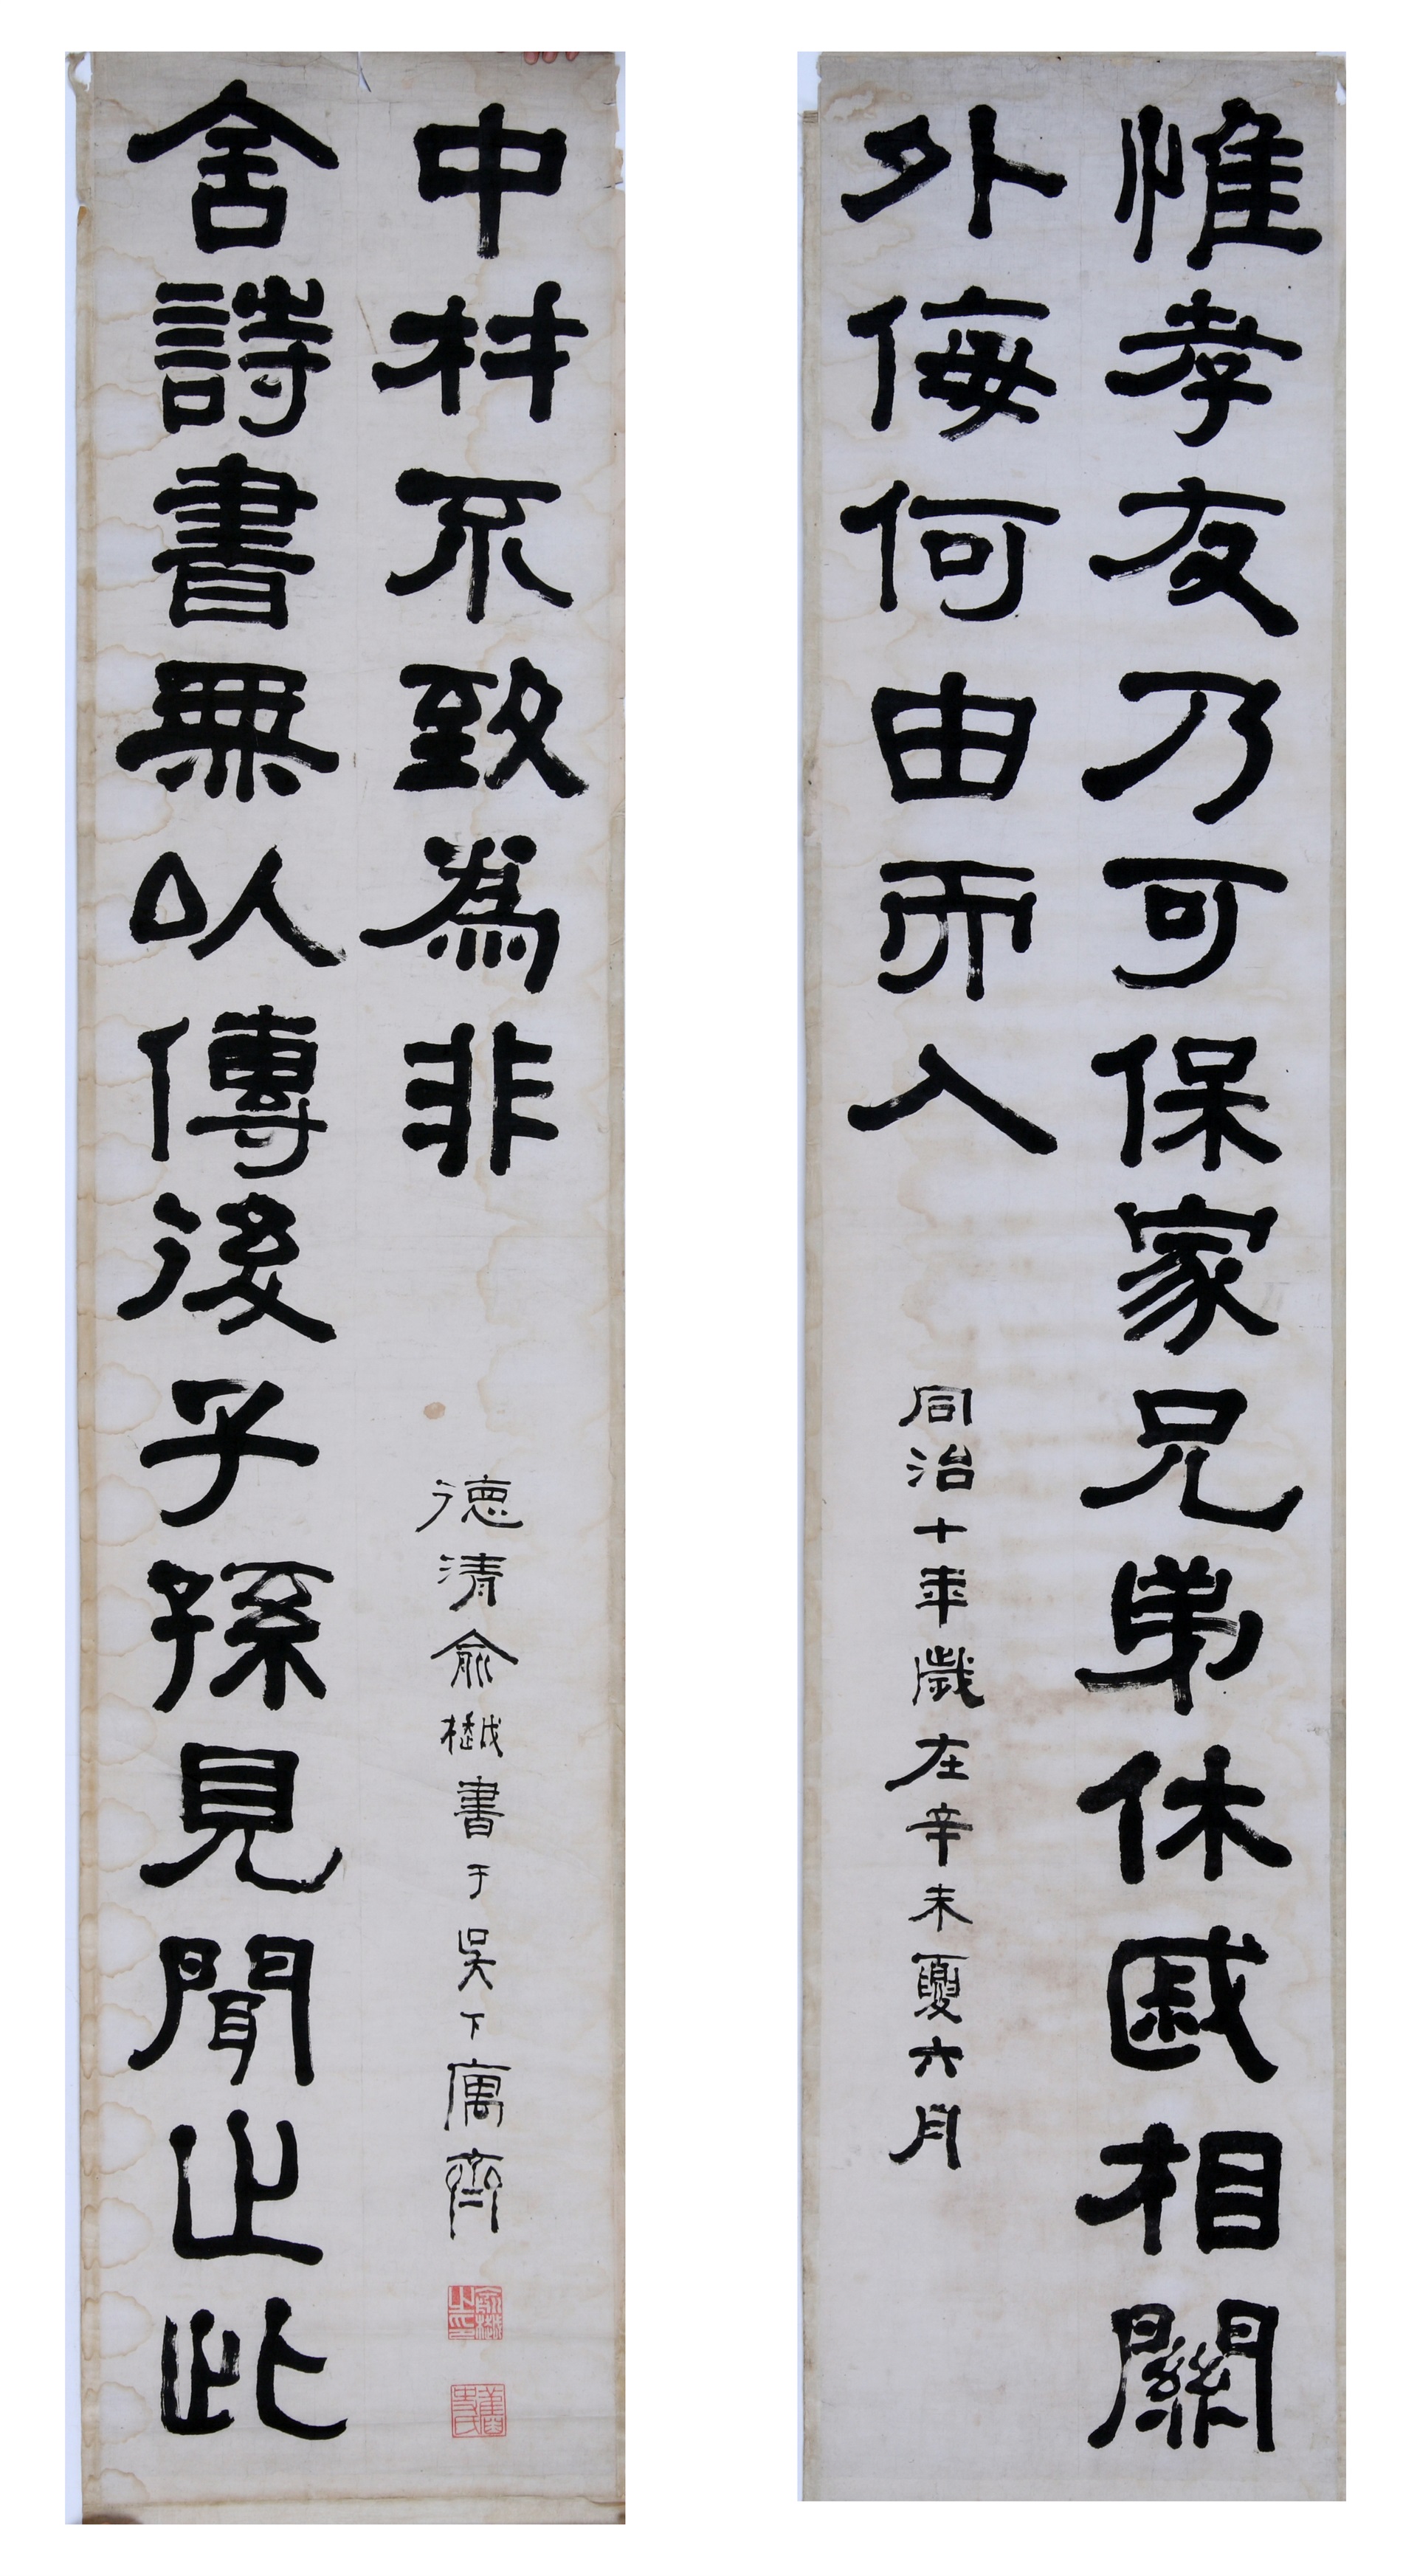 惟孝友乃可保家兄弟休戚相關
外侮何由而入
同治十年歲在辛未夏六月
舍詩書無以傳後子孫見聞止此
中材不致為非
德清俞樾書于吳下寓齋
俞樾之印
舊史氏